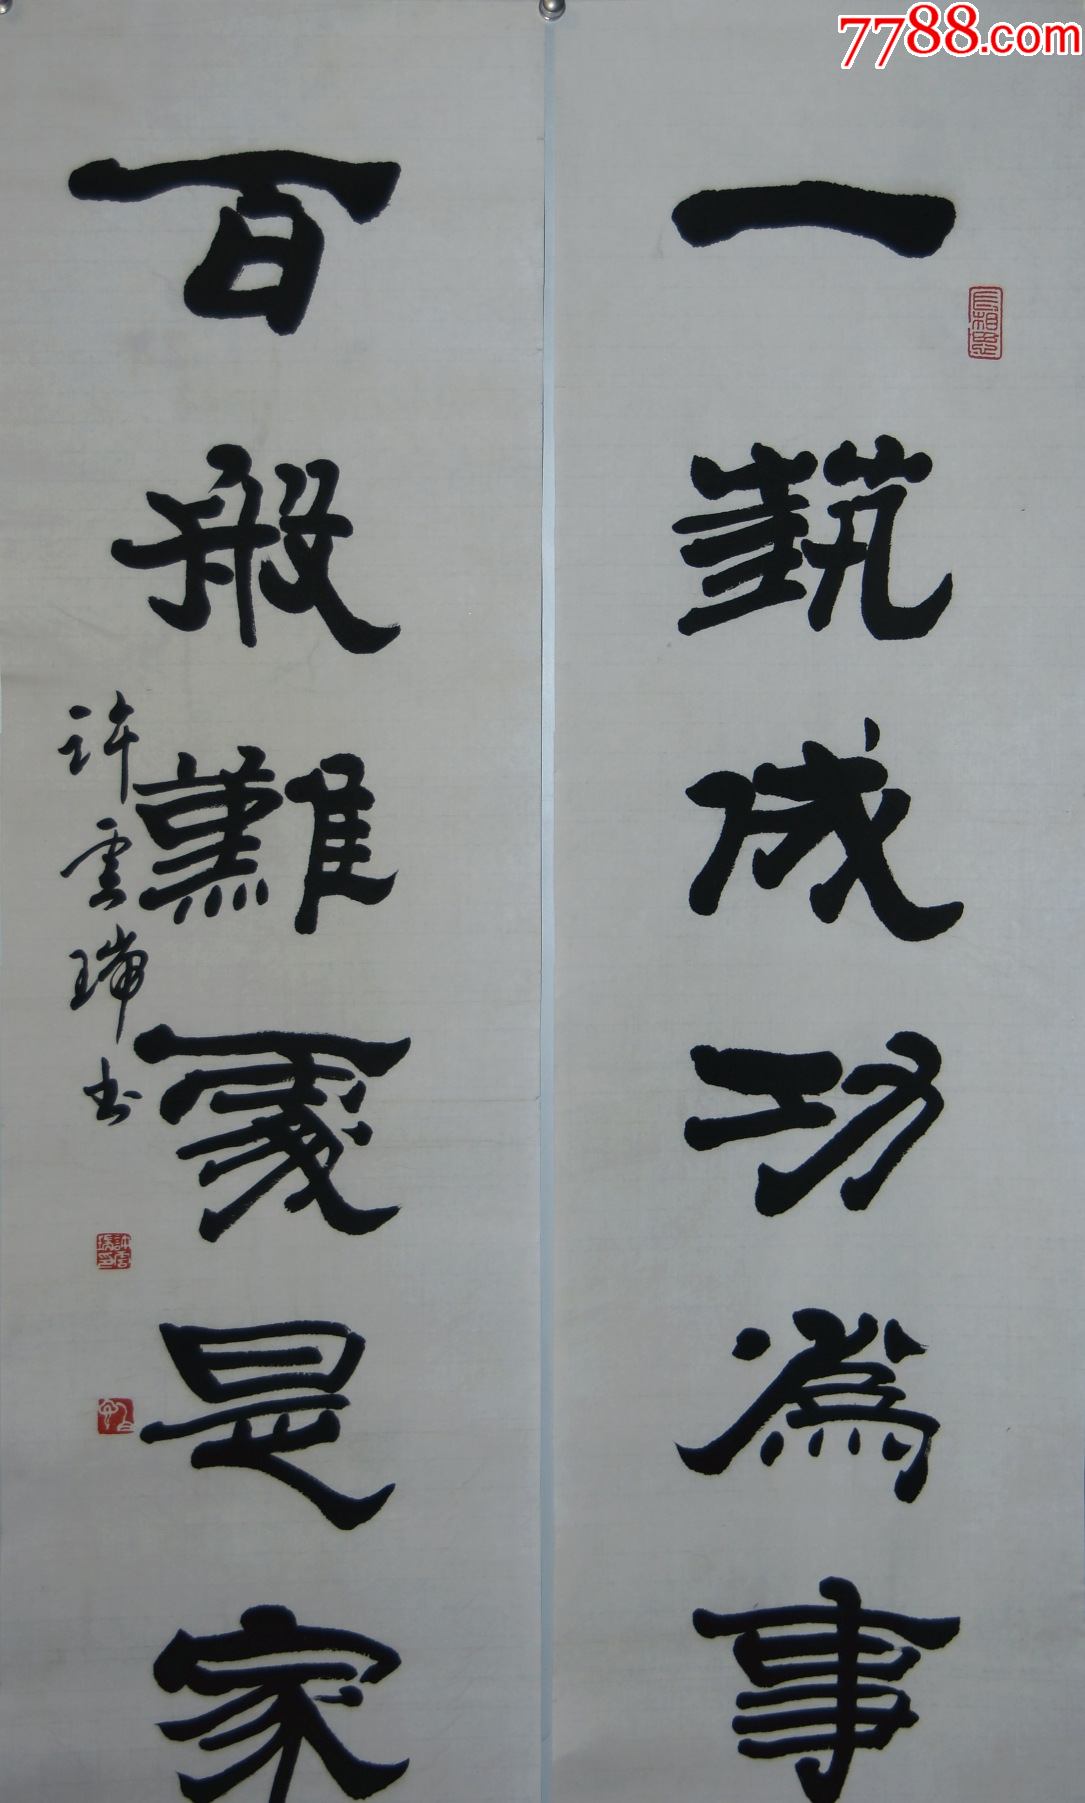 7788.com
一藝成功爲事
百般難處是家
許雲瑞书
許雲瑞印